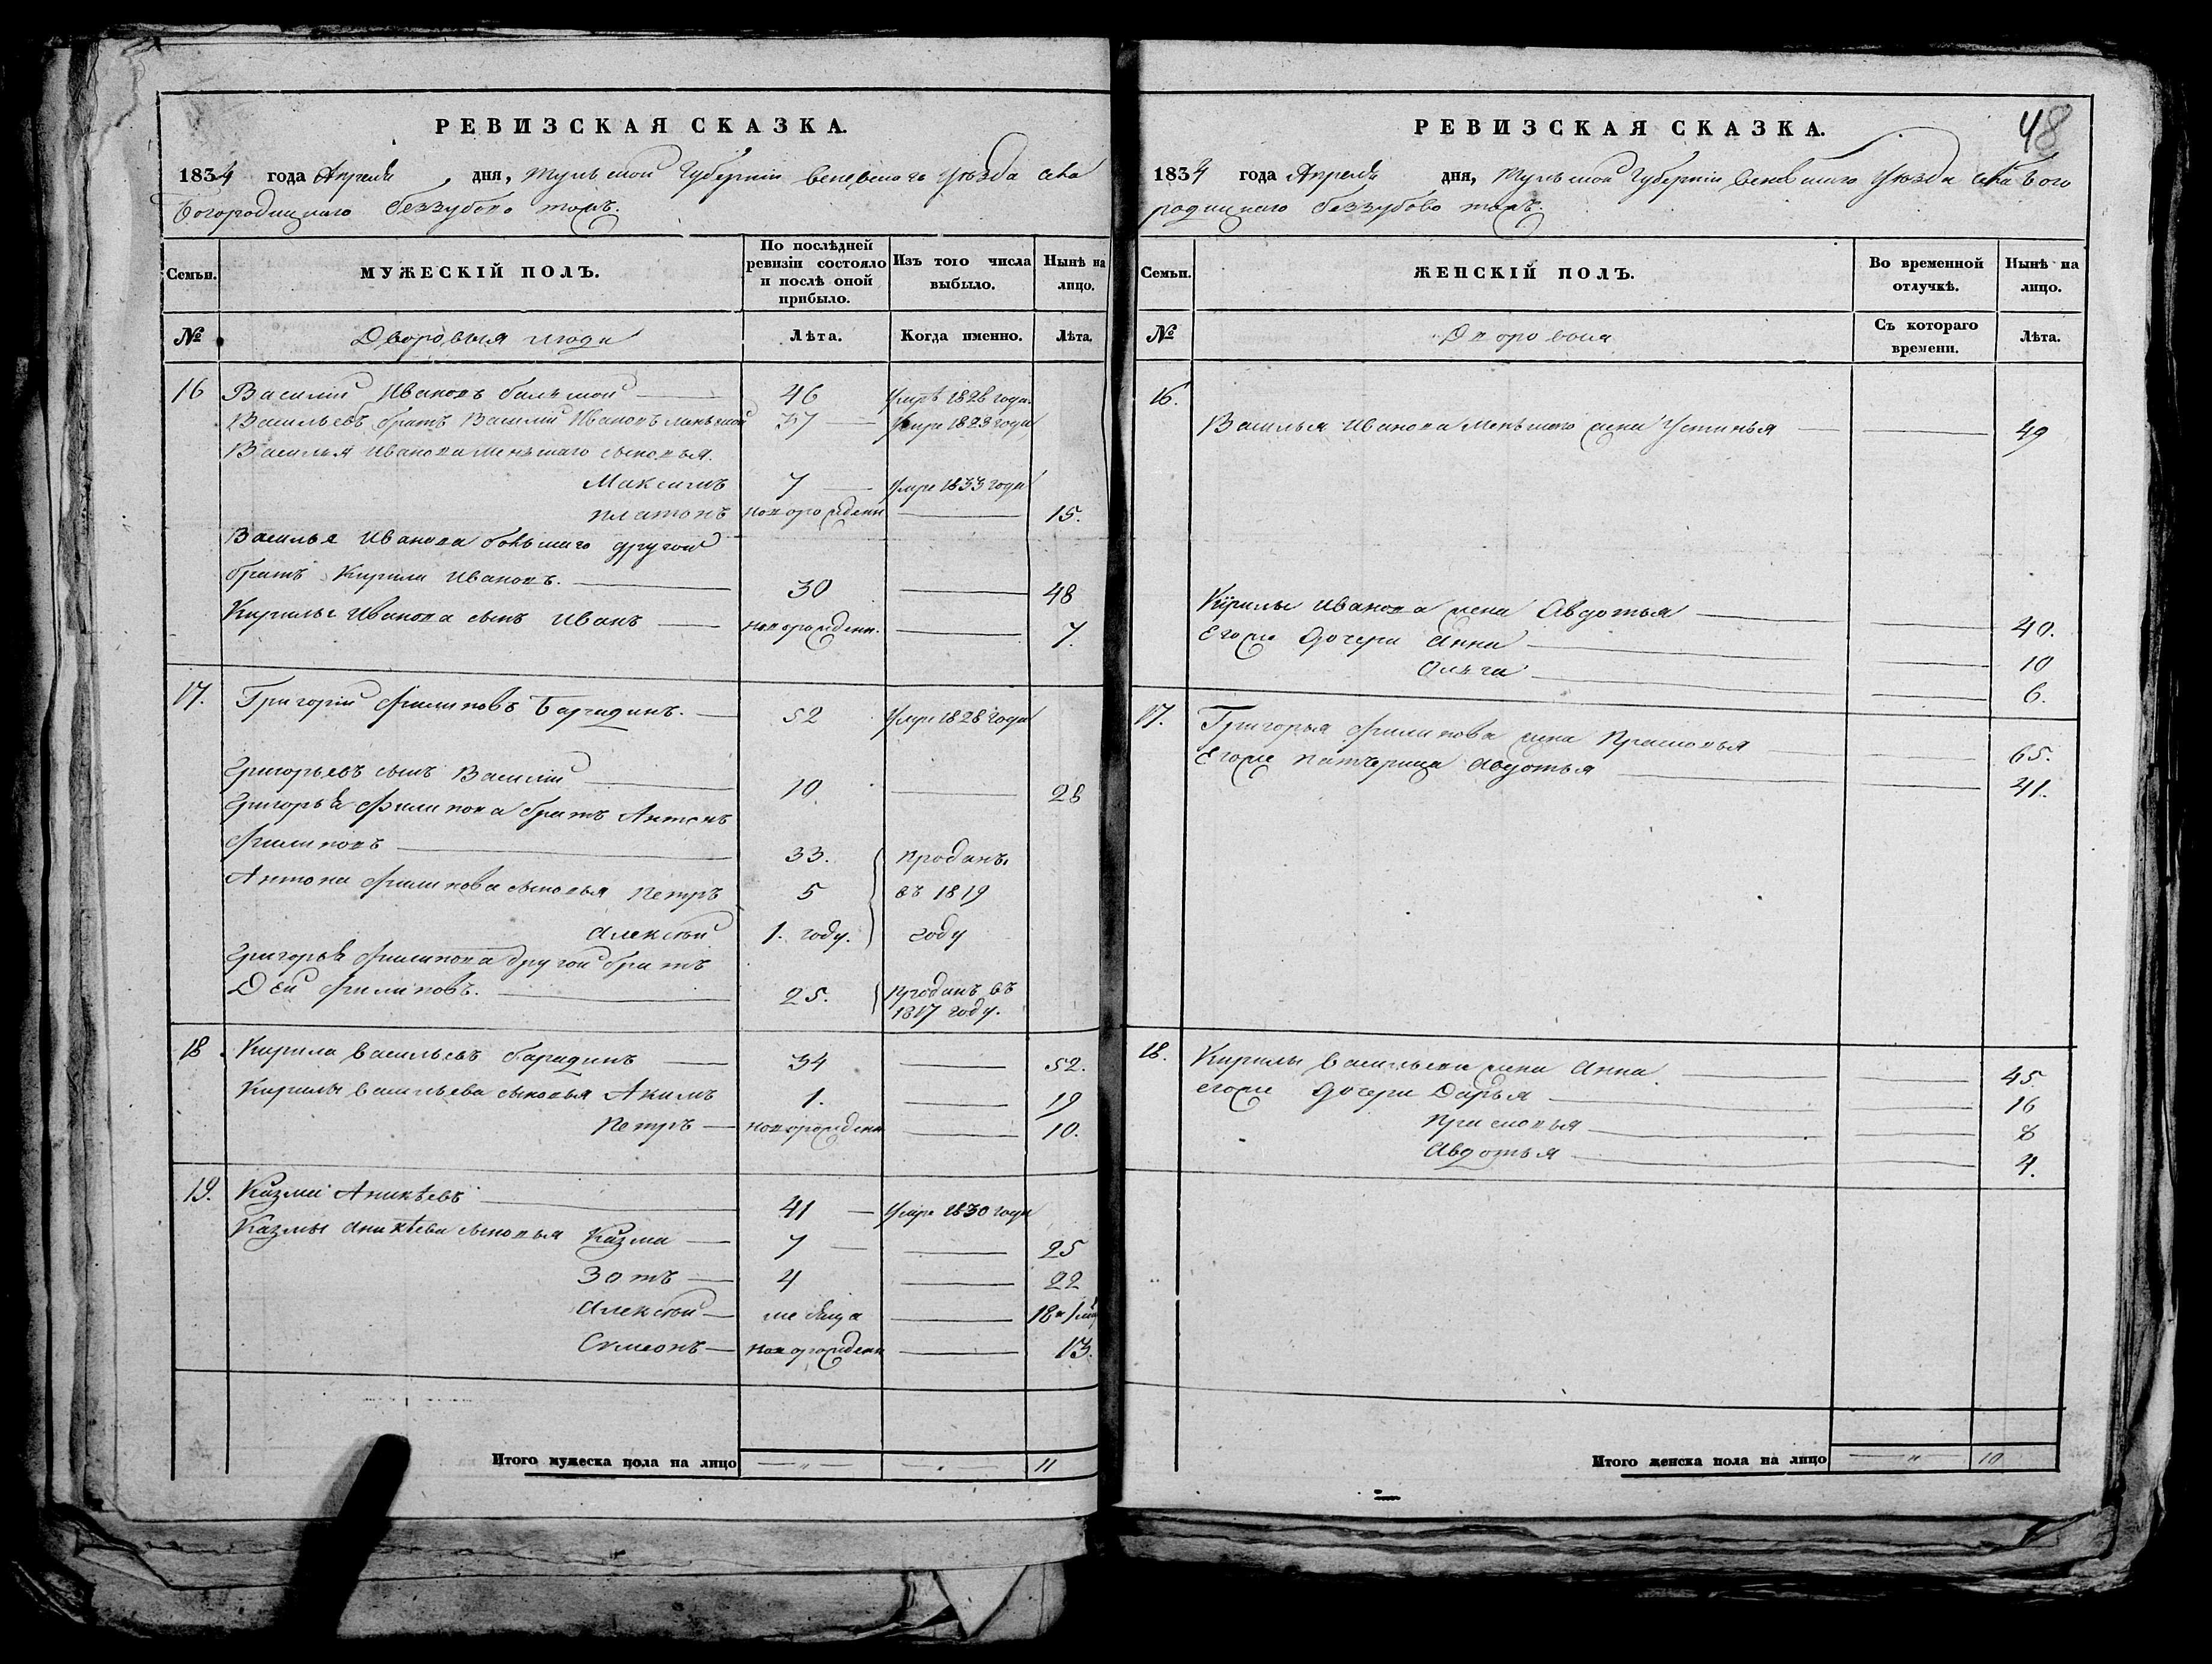 РЕВИЗСКАЯ СКАЗКА.
1834 года Апреля дня, Тульской Губернии Веневского Уезда села
Богородицкаго беззубово тожъ.
Семьи. МУЖЕСКІЙ ПОЛЪ. По послѣдней ревизіи состояло и послѣ оной прибыло. Изъ того числа выбыло. Нынѣ на лицо.
№ Дворовыя люди Лѣта. Когда именно. Лѣта.
16 Василий Ивановъ большой 46 умре 1826 года
Васильевъ братъ Василий Ивановъ меньшой 37 умре 1823 года
Василья Иванова меньшаго сыновья.
Максимъ 7 умре 1833 года
платонъ новорожденн 15.
Василья Иванова большаго другой
братъ Кирила Ивановъ. 30 48
Кирилы Иванова сынъ Иванъ новорожденн. 7.
17. Григорий Филиповъ Барадинъ. 52 умре 1828 года
Григорьевъ сынъ Василий 10 28
Григорья Филипова братъ Антонъ
Филиповъ 33. проданъ
Антона Филипова сыновья Петръ 5 въ 1819
Алексей 1. году. году
Григорья Филипова другой братъ
Дей Филиповъ. 25. проданъ въ
1817 году.
18 Кирила Васильевъ барадинъ 34 52.
Кирилы Васильева сыновья Акимъ 1. 19
Петръ новорожденн 10.
19. Казма Аникѣевъ 41 умре 1830 года
Казмы Аникѣева сыновья Казма 7 25
Зотъ 4 22
Алексей месяца 18 и 1 ме
Симеонъ новорожденн 13.
Итого мужеска пола на лицо 11
48
РЕВИЗСКАЯ СКАЗКА.
1834 года Апреля дня, Тульской Губернии Веневскаго Уезда села Бого
родицкаго беззубово тожъ.
Семьи. ЖЕНСКІЙ ПОЛЪ. Во временной отлучкѣ. Нынѣ на лицо.
№ Дворовыя Съ котораго времени. Лѣта.
16.
Василья Иванова меньшаго жена Устинья 49
Кирилы Иванова жена Авдотья 40.
Егоже дочери Анна 10
Ольга 6.
17. Григорья Филипова жена Прасковья 65.
Егоже патчерица Авдотья 41.
18. Кирилы Васильева жена Анна 45
егоже дочери Дарья 16
Прасковья 8
Авдотья 4.
Итого женска пола на лицо 10